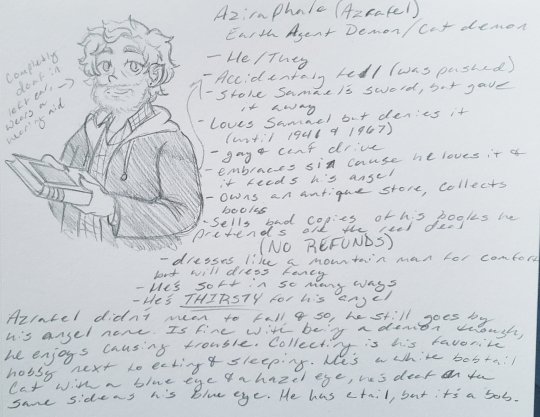 Aziraphale (Azrafel)
Earth Agent Demon/Cat demon
- He/They
- Accidentally fell (was pushed)
- Stole Samael's sword, but gave
it away
- Loves Samael but denies it
(until 1941 & 1967)
- gay & can't drive
- embraces sin cause he loves it &
it feeds his angel
- Owns an antique store, collects
books
- Sells bad copies of his books he
pretends are the real deal
(NO REFUNDS)
- dresses like a mountain man for comfort
but will dress fancy
- He's soft in so many ways
- He's THIRSTY for his angel
Completely
deaf in
left ear,
wears a
hearing aid
Azrafel didn't mean to fall & so, he still goes by
his angel name. Is fine with being a demon though,
he enjoys causing trouble. Collecting is his favorite
hobby next to eating & sleeping. He's a white bobtail
cat with a blue eye & a hazel eye, he's deaf on the
same side as his blue eye. He has a tail, but it's a bob.